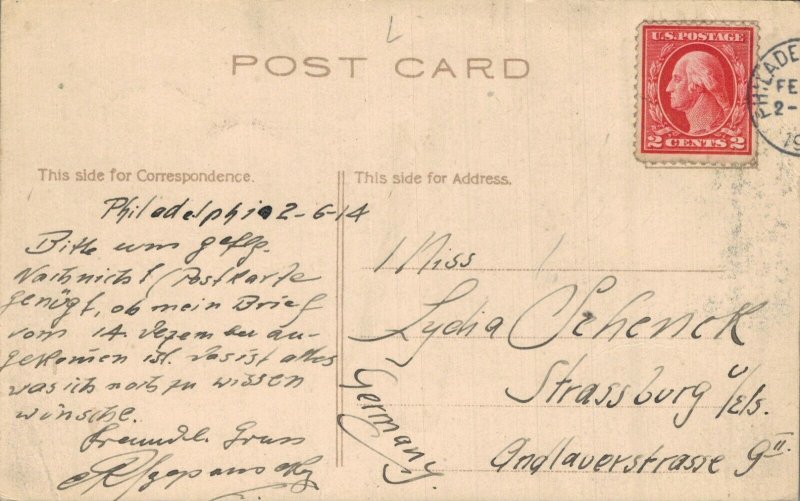 POST CARD
U.S. POSTAGE
2 CENTS 2
PHILADE
FE
2-
19
This side for Correspondence.
This side for Address.
Philadelphia 2-6-14
Bitte um geflg.
Nachricht (Postkarte
genügt, ob mein Brief
vom 14. Dezember an-
gekommen ist. Das ist alles
was ich noch zu wissen
wünsche.
Freundl. Gruss
Miss
Lydia Schenck
Strassburg i/Els.
Andlauerstrasse 9 II
Germany.